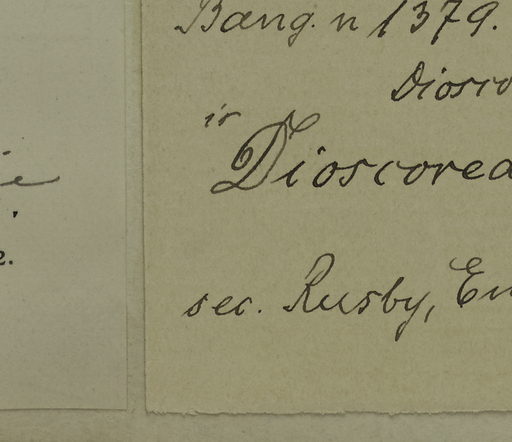 Bang. n 1379.
Diosco
is
Dioscorea
sec. Rusby, En
e.